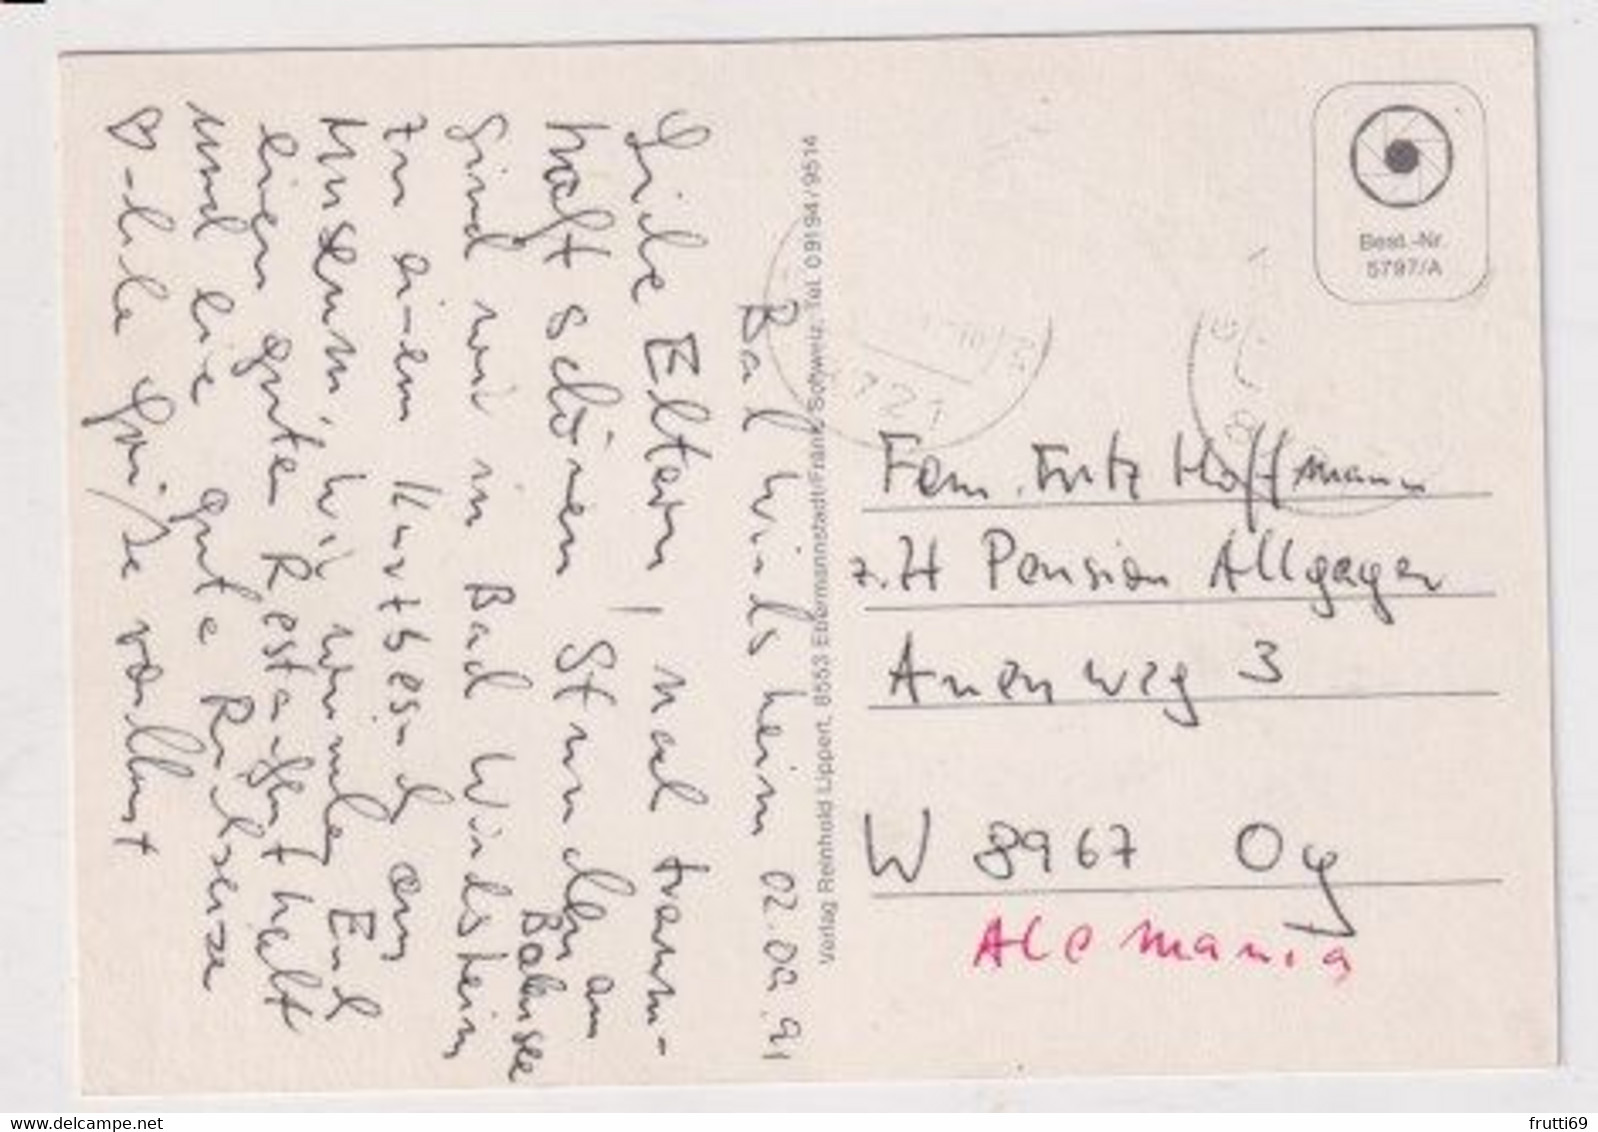 Bad Windsheim 02.09.91
Liebe Eltern, nach traum-
haft schönen Stunden am
Bodensee
sind wir in Bad Windsheim
zu ei-em Kurzbesuch am
Museum. Wir wünschen Euch
einen guten Restaufenthalt
und eie gute Rückreise
♡-liche Grüße von
Verlag Reinhold Lippert, 8553 Ebermannstadt/Fränk. Schweiz, Tel. 09194/9514
Best.-Nr.
5797/A
Fam. Fritz Hoffmann
z.H Pension Allgayer
Auenweg 3
W 8967 Oy
Alemania
frutti69